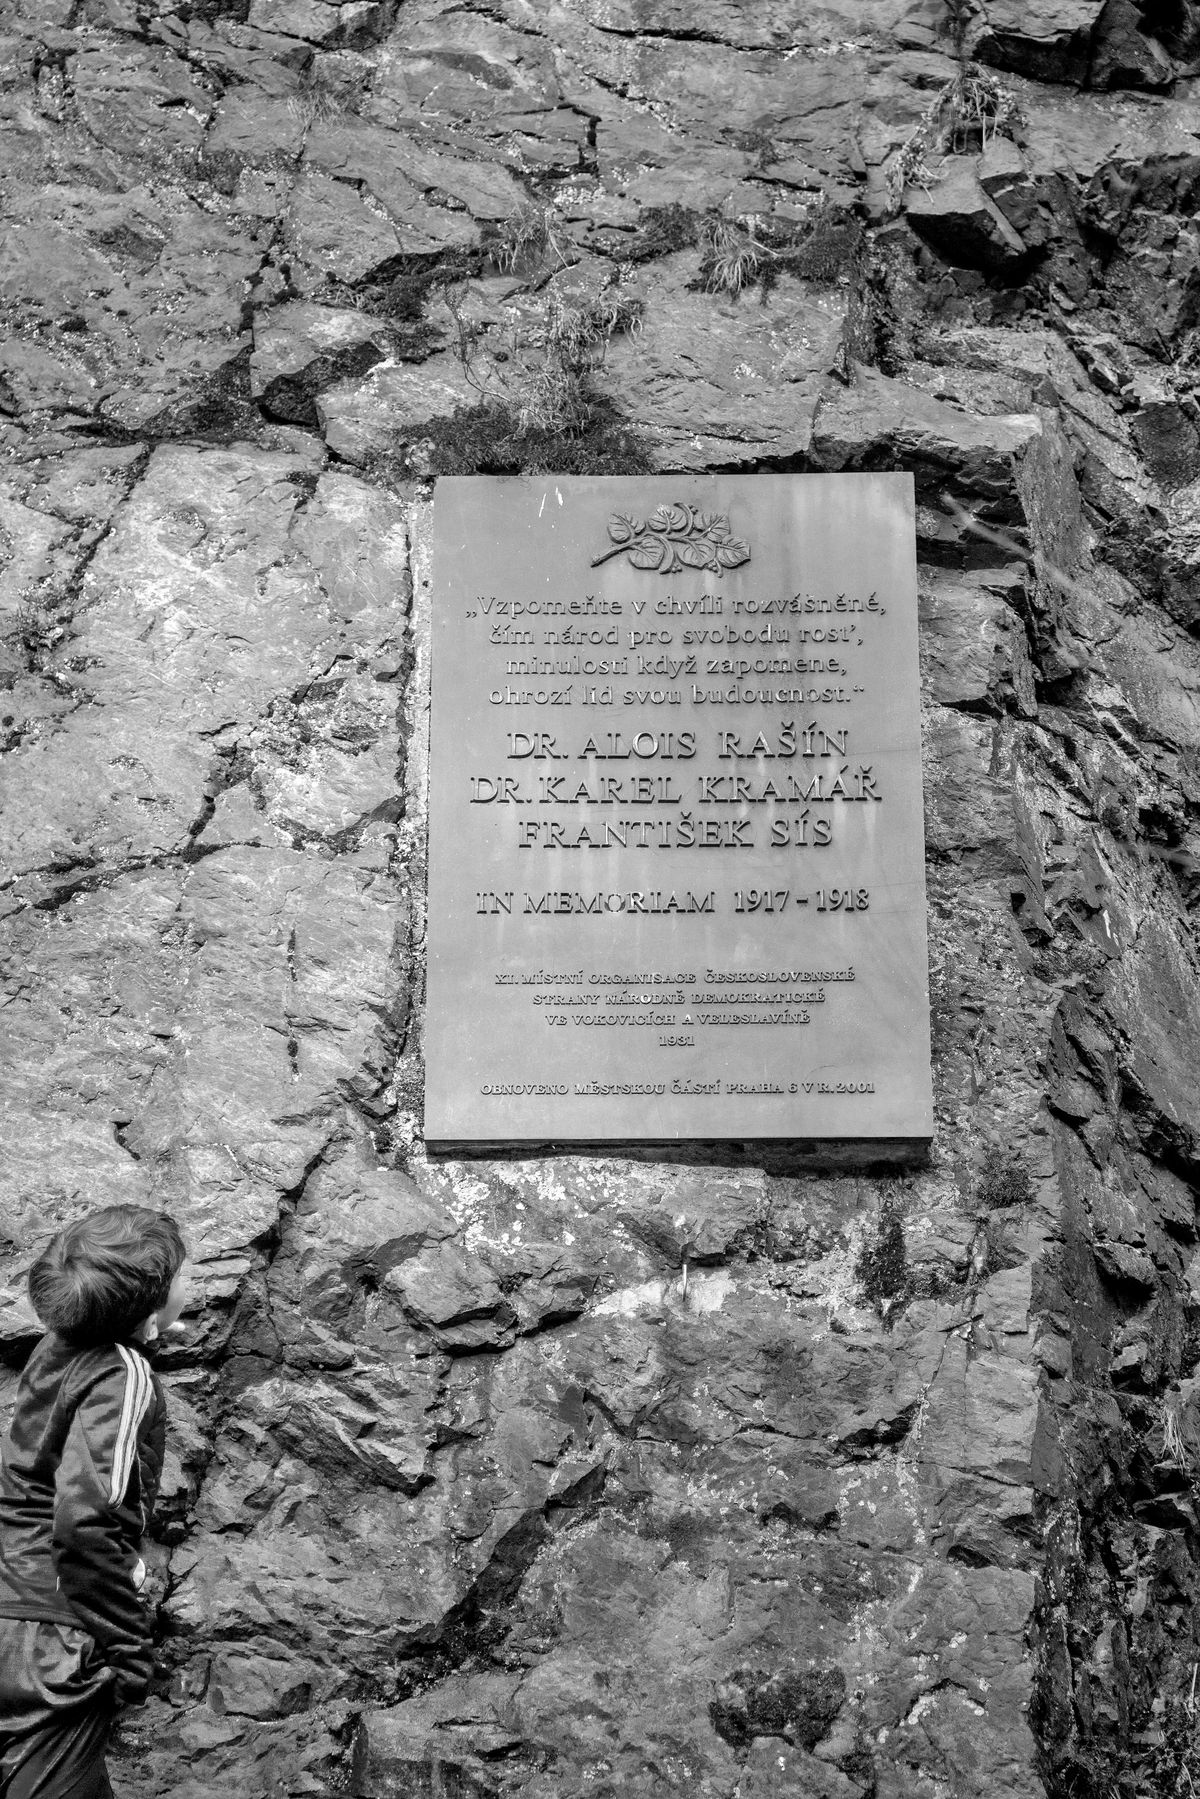 „Vzpomeňte v chvíli rozvášněné,
čím národ pro svobodu rost’,
minulosti když zapomene,
ohrozí lid svou budoucnost.“
DR. ALOIS RAŠÍN
DR. KAREL KRAMÁŘ
FRANTIŠEK SÍS
IN MEMORIAM 1917 – 1918
XI. MÍSTNÍ ORGANISACE ČESKOSLOVENSKÉ
STRANY NÁRODNĚ DEMOKRATICKÉ
VE VOKOVICÍCH A VELESLAVÍNĚ
1931
OBNOVENO MĚSTSKOU ČÁSTÍ PRAHA 6 V R. 2001